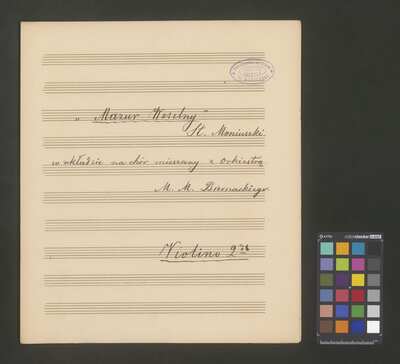 „Mazur Weselny"
St. Moniuszki.
w układzie na chór mieszany z Orkiestrą
M. M. Biernackiego.
Violino 2do